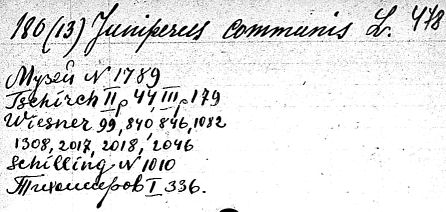 180(13) Juniperus communis L. 478
Музей N 1789
Tschirch II p 44 III p 179
Wiesner 99, 840, 846, 1082
1308, 2017, 2018, 2046
Schilling N 1010
Тихомиров I 336.